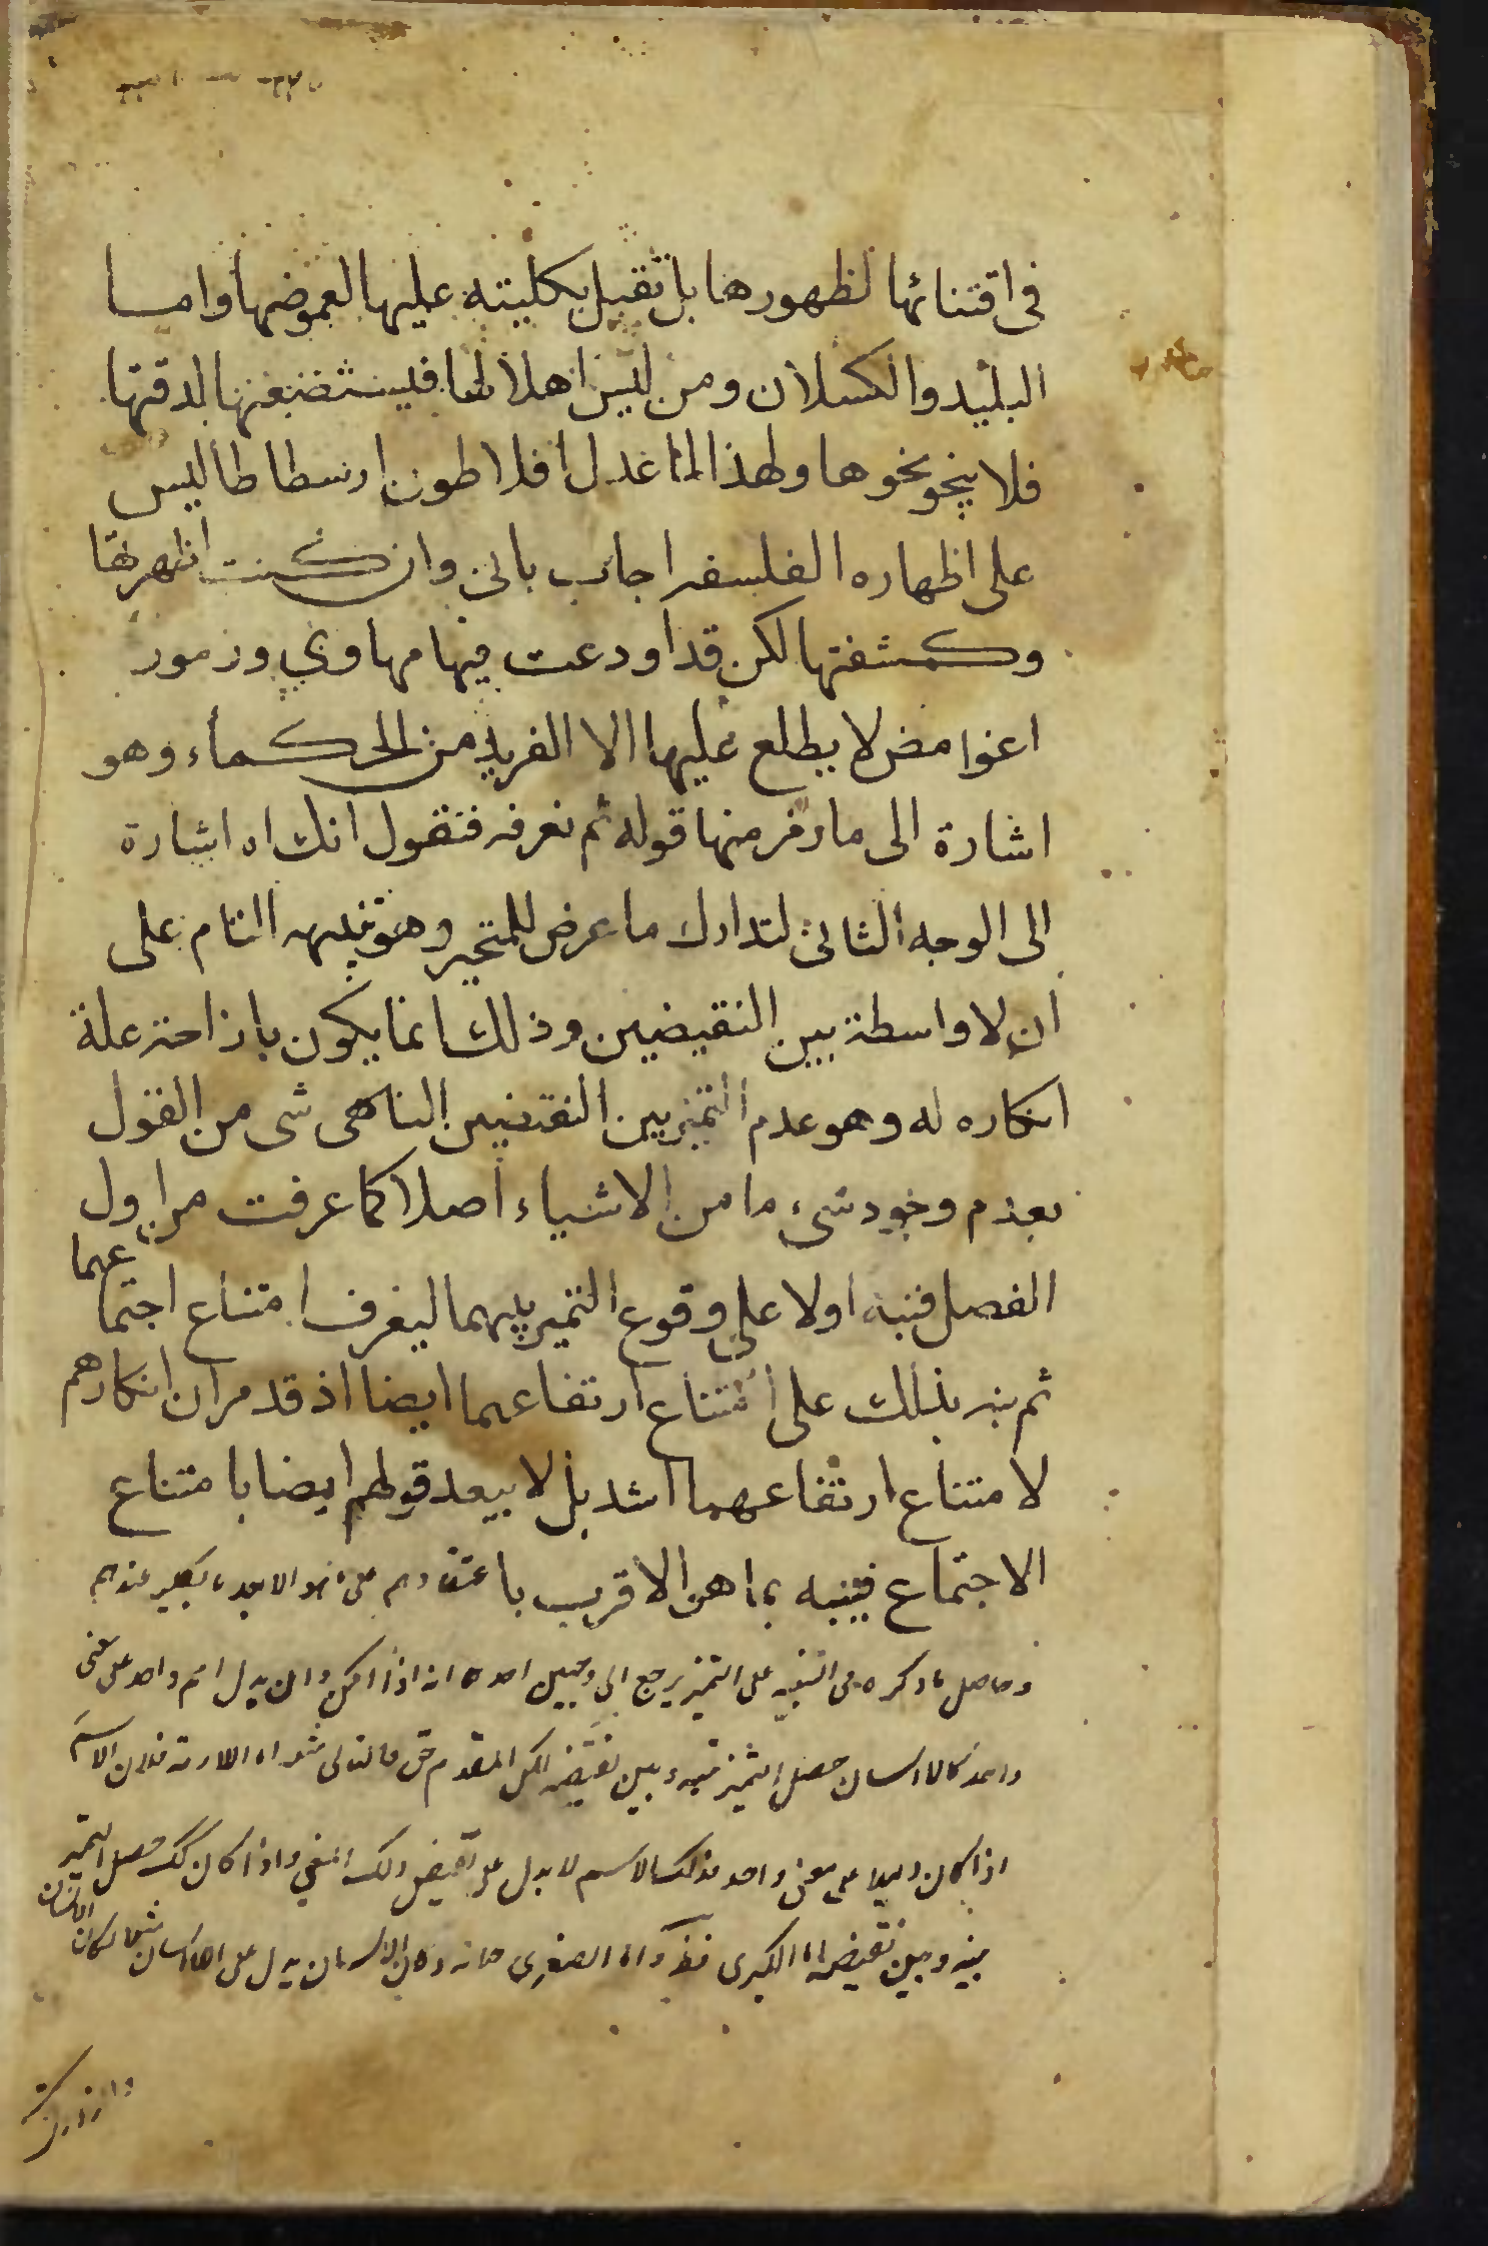 في اقتنائها لظهورها بل تقبل بكليته عليها لغموضها واما
البليد والكسلان ومن ليس اهلا لها فيستضعفنها لدقتها
فلا ينحو نحوها ولهذا لما عذل افلاطون ارسطاطاليس
على اظهاره الفلسفه اجاب باني وان كنت اظهرتها
وكشفتها لكن قد اودعت فيها مهاوي ورموز
اغوامض لا يطلع عليها الا الفريد من الحكماء وهو
اشارة الى ما رمز منها قوله ثم نعرفه فنقول انك اه اشارة
الى الوجه الثاني لتدارك ما عرض للمتحير وهو تنبيهه التام على
ان لا واسطة بين النقيضين وذلك انما يكون بازاحة علة
انكاره له وهو عدم التميز بين النقيضين الناهى شى من القول
بعدم وجود شيء ما من الاشياء اصلا كما عرفت من اول
الفصل فنبه اولا على وقوع التميز بينهما ليعرف امتناع اجتماعهما
ثم نبه بذلك على امتناع ارتفاعهما ايضا اذ قد مر ان انكارهم
لامتناع ارتفاعهما اشد بل لا يبعد قولهم ايضا بامتناع
الاجتماع فينبه بما هو الاقرب باعتقادهم على ما هو الابعد عندهم
وحاصل ما ذكره في التنبيه على التميز يرجع الى وجهين احدها انه اذا امكن ان يدل اسم واحد على معنى
واحد كالانسان حصل التميز بينه وبين نقيضه لكن المقدم حق فالتالي مثله اما الملازمة فلان الاسم
اذا كان دليلا على معنى واحد فذلك الاسم لا يدل على نقيض ذلك المعنى واذا كان كك حصل التميز
بينه وبين نقيضه اما الكبرى فظ واما الصغرى فانه لو كان الانسان يدل على اللاانسان مثلا لكان الانسان